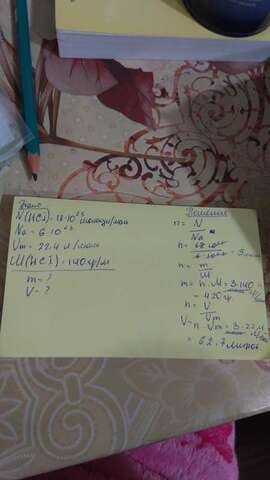 Дано:
N(HCl) = 18·10²³ молекул/моль
Na = 6·10²³
Vm = 22.4 л/моль
M(HCl) = 140 гр/м
m = ?
V = ?
Решение
n = N / Na
n = = 3
n = m / M
m = n · M = 3·140
= 420 гр.
n = V / Vm
V = n · Vm = 3·22.4
= 62.7 литров